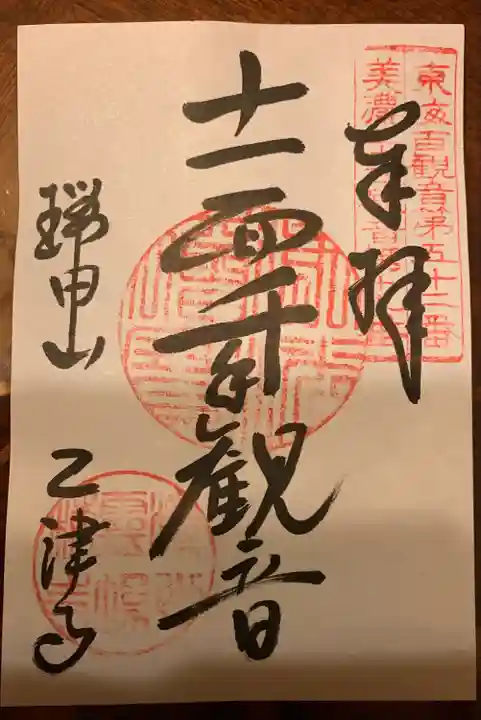 東海百観音第五十二番
美濃
奉拝
十一面千手観音
瑞甲山 乙津寺